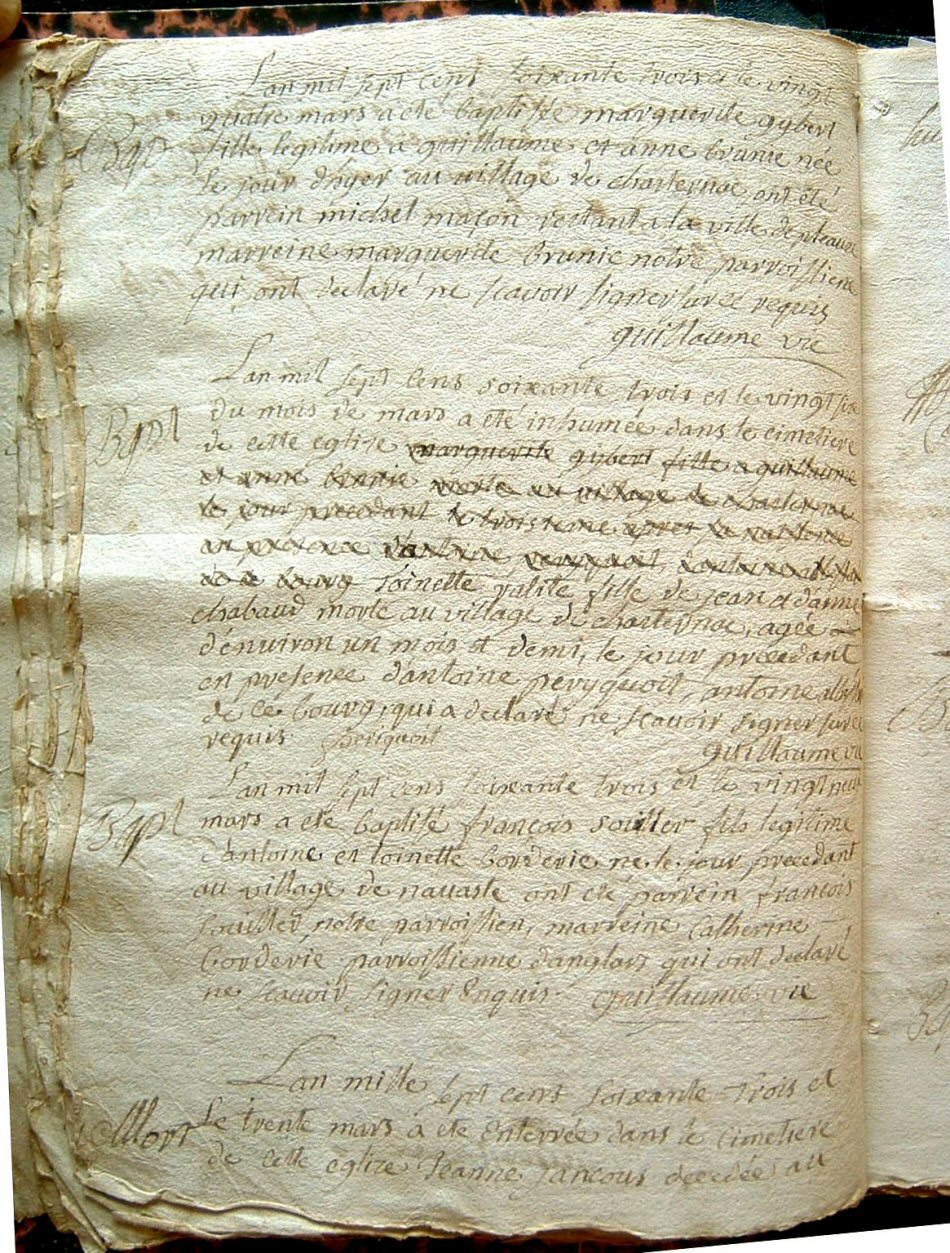 Lan mil sept cent soixante trois et le vingt
quatre mars a eté baptisée marguerite gybert
Bap fille legitime a guillaume et anne brunie née
le jour d'hyer au village de charternac, ont été
parrein michel maçon restant a la ville de pleaux
marreine marguerite brunie notre parroissiene
qui ont declaré ne scavoir signer sur ce requis
guillaume vie
Lan mil sept cens soixante trois et le vingt six
du mois de mars a été inhumée dans le cimetiere
Bapt de cette eglise marguerite gybert fille a guillaume
et anne brunie morte au village de charternac
le jour precedant
en presence
toinette valite fille de jean et d'anne
chabaud morte au village de charternac, agée
d'environ un mois et demi, le jour precedant
en presence d'antoine peryquoit, antoine
de ce bourg, qui a declaré ne scavoir signer sur ce
requis Periquoit guillaume vie
Lan mil sept cens soixante trois et le vingt neuf
Bapt mars a eté baptisé françois souiller fils legitime
d'antoine et toinette borderie ne le jour precedant
au village de navaste ont eté parrein françois
souiller notre parroissien, marreine Catherine
borderie parroissienne d'anglars qui ont declaré
ne scavoir signer Enquis guillaume vie
Lan mille sept cens soixante trois et
Mort Le trente mars a eté Enterrée dans le cimetiere
de cette eglise Jeanne jancous decedée au